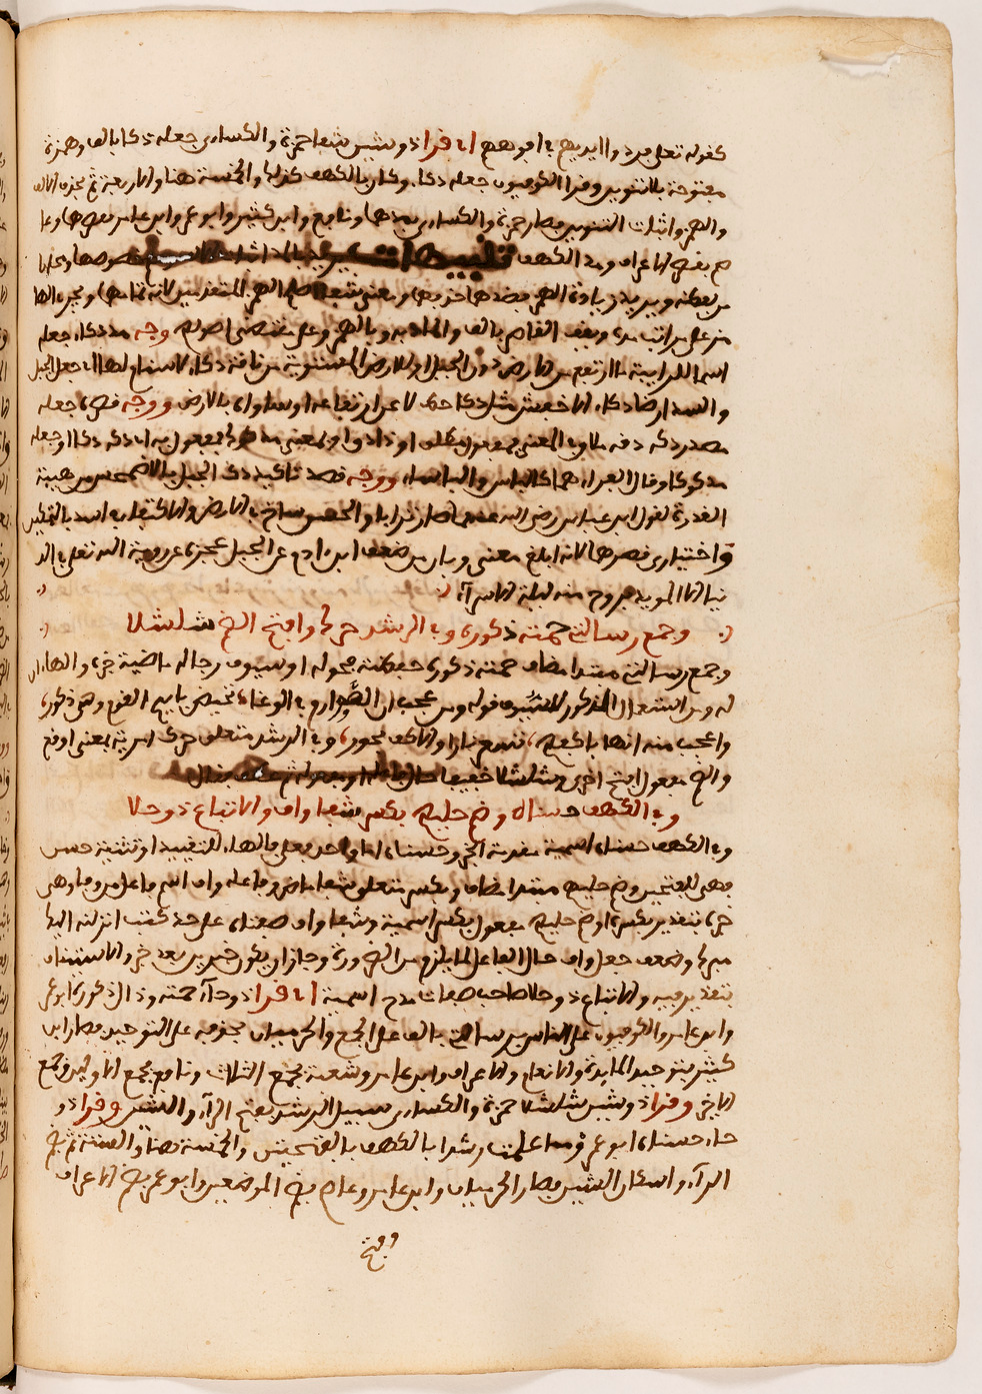 كقوله تعلى فردوا ايديهم في افوههم اي قرا ذو شين شفا حمزة والكسائي جعله دكا بالف وهمزة
مفتوحة بلا تنوين وقرا الكوفيون جعله دكا وكان بالكهف كذلك والخمسة هنا والاربعة ثم بحذف الالف
والهمز واثبات التنوين فصار حمزة والكسائي بمدهما ونافع وابن كثير وابو عمرو وابن عامر بقصرهما وعا
صم بقصر الاعراف ومد الكهف تنبيهات
من على مراتب مده ويقف القاصر بالف والماد به وبالهمز وعلى مقتضى اصولهم وجه مد دكاء جعله
اسما للرابية ما ارتفع من الارض دون الجبل او للارض المستوية من ناقة دكاء لا سنام لها اي جعل الجبل
والسد ارضا دكاء الاخفش مثل دكا حذف لا على ارتفاعه او ساواه بالارض ووجه قصره جعله
مصدر دكه دقه ملاق في المعنى فمفعول مطلق او ذا دك او بمعنى مدكوك مفعول به اي دكه دكا او جعله
مدكوكا وقال الفراء هما كالباس والباساء ووجه قصد تاكيد دك الجبل بالاضمحلال من هيبة
القدرة لقول ابن عباس رضي الله عنهما صار ترابا والحسن ساخ في الارض والاكتفاء في السد بالتمكين
واختياري قصرهما لانه ابلغ معنى وبان من ضعف ابن ادم عن الجبل عجزه عن رؤية الله تعلى في الد
نيا الا المويد بروح منه ليلة الاسراء
وجمع رسالتي حمته ذكوره وفي الرشد حرك وافتح الضم شلشلا
وجمع رسالتي مبتدا مضاف حمته ذكوره فعلية محوله او سيوف رجاله ماضية خبره والهاء
له ومن استعمال المذكور للسيوف قوله ومن عجب ان الصوارم في الوغا تحيض بايدي القوم وهي ذكور
واعجب منه انها باكفهم تتسع نارا والاكف بحور وفي الرشد متعلق حرك امرية بمعنى اوقع
والضم مفعول افتح اخرى وشلشلا خفيفا حال فاعله او مفعوله
وفي الكهف حسناه وضم حليهم بكسر شفا واف والاتباع ذو حلا
وفي الكهف حسناه اسمية مقدمة الخبر وحسناه اما واحد فعلى فالهاء للتقييد او تثنية حسن
فهي للفتحين وضم حليهم مبتدا مضاف وبكسر متعلق شفا ماض وفاعله واف اسم فاعل من وفا وهي
خبره بتقدير بكسره او ضم حليهم مفعول بكسر اسمية وشفا واف صفتاه على حد كتب انزلنه اليك
مبرك وضعف جعل واف حال الفاعل لما يلزم من الضرورة وجاز ان يكون خبر بعد خبر والاستيناف
بتقدير فيه والاتباع ذو حلا صاحب صفات مدح اسمية اي قرا ذو حاء حمته وذال ذكوره ابو عمرو
وابن عامر والكوفيون على الناس برسالتي بالف على الجمع والحرميان بحذفه على التوحيد فصار ابن
كثير بتوحيد المايدة والانعام والاعراف وابن عامر وشعبة بجمع الثلاث ونافع بجمع الاولين وجمع
الاخر وقرا ذو شين شلشلا حمزة والكسائي سبيل الرشد بفتح الراء والشين وقرا ذو
حاء حسناه ابو عمرو مما علمت رشدا بالكهف بالفتحتين والخمسة هنا والستة ثم بضم
الراء واسكان الشين فصار الحرميان وابن عامر وعاصم بضم الموضعين وابو عمرو بضم الاعراف
وفتح